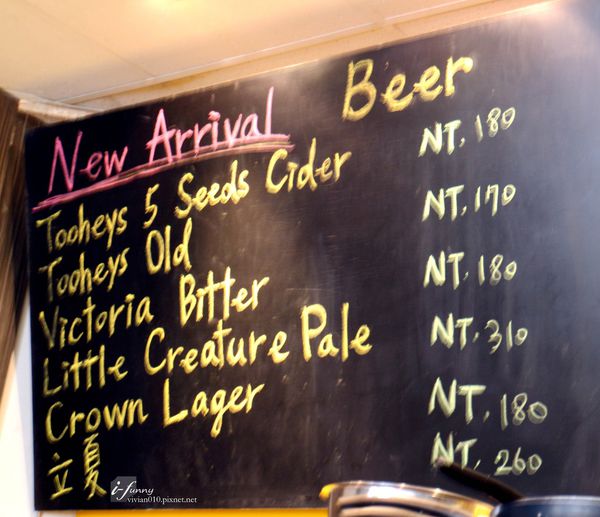 New Arrival Beer
Tooheys 5 Seeds Cider NT. 180
Tooheys Old NT. 170
Victoria Bitter NT. 180
Little Creature Pale NT. 310
Crown Lager NT. 180
立夏 NT. 260
i-funny
vivian010.pixnet.net